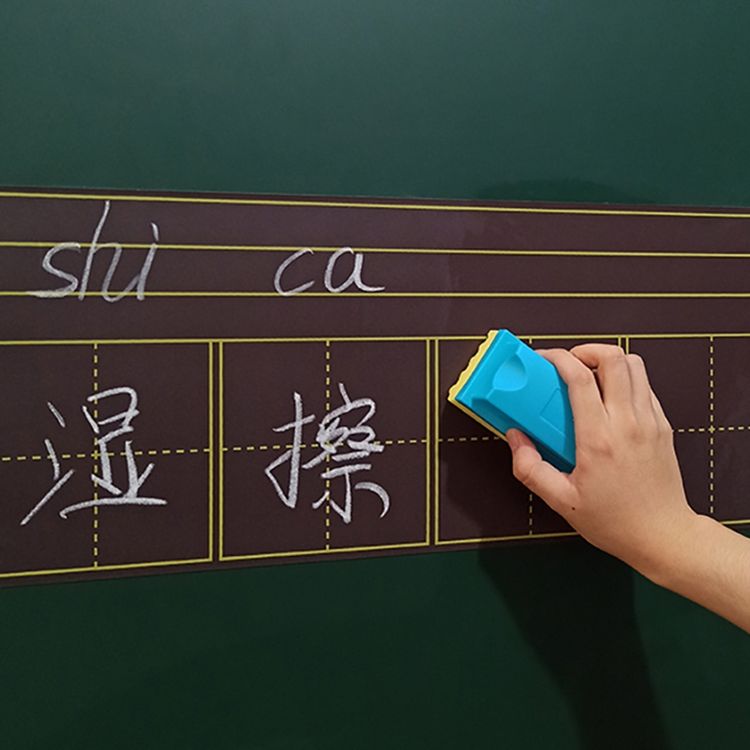 shi ca
湿擦